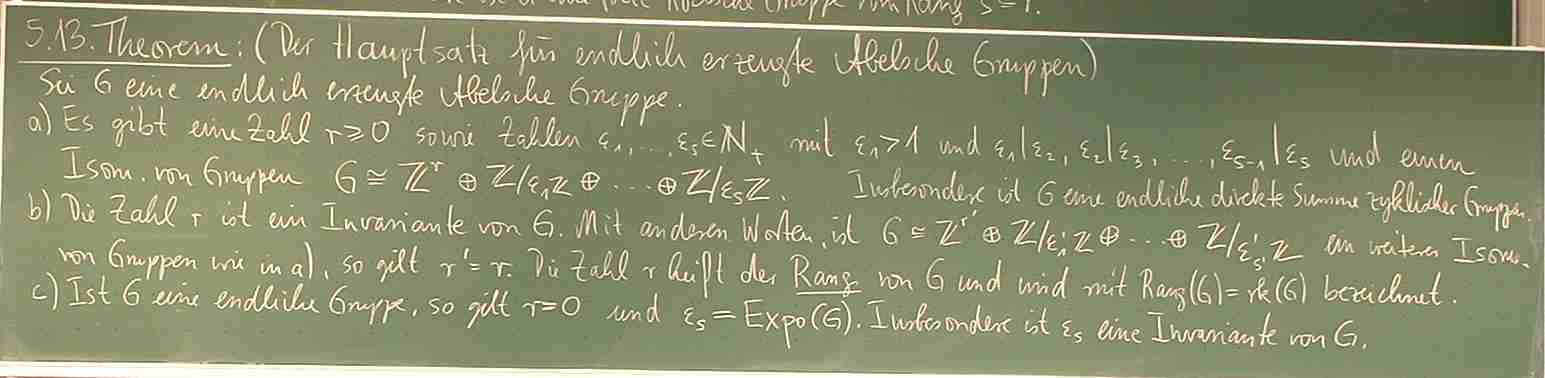 Rang s-1.
5.13. Theorem: (Der Hauptsatz für endlich erzeugte Abelsche Gruppen)
Sei G eine endlich erzeugte Abelsche Gruppe.
a) Es gibt eine Zahl r≥0 sowie Zahlen ε₁,...,εₛ∈ℕ₊ mit ε₁>1 und ε₁|ε₂, ε₂|ε₃, ..., εₛ₋₁|εₛ und einen
Isom. von Gruppen G ≅ ℤʳ ⊕ ℤ/ε₁ℤ ⊕ ··· ⊕ ℤ/εₛℤ. Insbesondere ist G eine endliche direkte Summe zyklischer Gruppen.
b) Die Zahl r ist ein Invariante von G. Mit anderen Worten, ist G ≅ ℤʳ' ⊕ ℤ/ε₁'ℤ ⊕ ··· ⊕ ℤ/ε'ₛ'ℤ ein weiterer Isom.
von Gruppen wie in a), so gilt r'=r. Die Zahl r heißt der Rang von G und wird mit Rang(G)=rk(G) bezeichnet.
c) Ist G eine endliche Gruppe, so gilt r=0 und εₛ = Expo(G). Insbesondere ist εₛ eine Invariante von G.